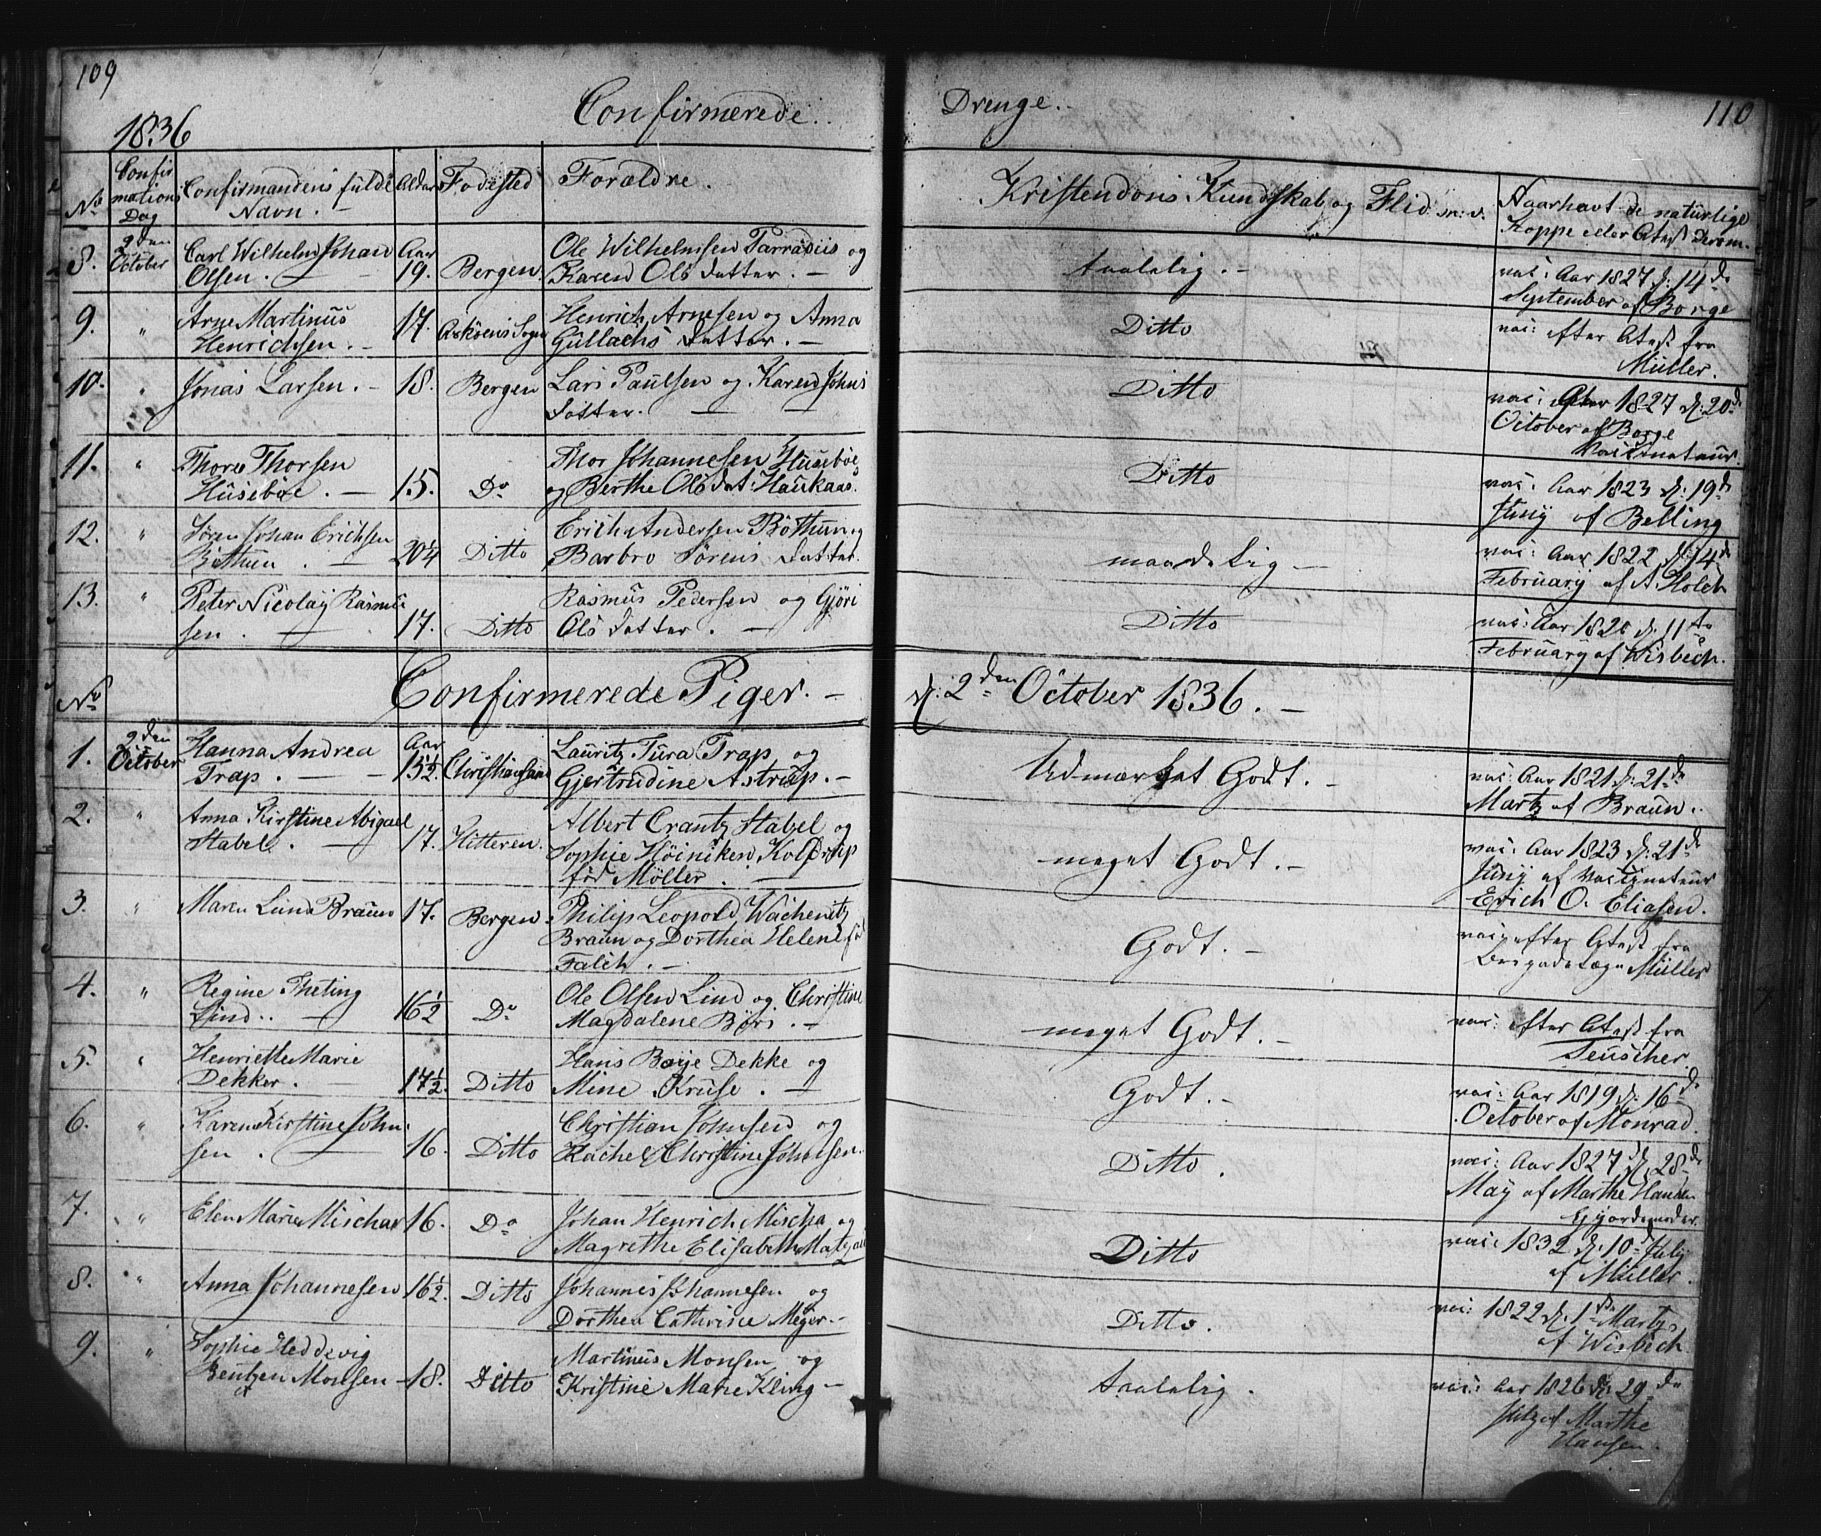 109
1836
Confirmerede
Drenge.
110
No
Confir
mations
Dag
Confirmandens fulde
Navn.
Alder
Fødested
Forældre.
Kristendoms Kundskab og Flid m. v.
Haar havt de naturlige
Koppe eller Atest derom
8. 2den October
Carl Wilhelm Johan
Olsen.
Aar
19.
Bergen
Ole Wilhelmsen Parradiis og
Karen Ols datter.
taalelig.
vac: Aar 1827 d: 14de
September af Borge
9. "
Arne Martinus
Henrichsen.
17.
Askøens Sogn
Henrich Arnesen og Anna
Gullachs datter.
Ditto
vac: efter Atest fra
Müller.
10. "
Jonas Larsen.
18.
Bergen
Lars Paulsen og Karen Johns
datter.
Ditto
vac: Aar 1827 d: 20de
October af Borge
Vaccinateur.
11. "
Thore Thorsen
Husebøe.
15.
Do
Thor Johannesen Husebøe
og Berthe Olsdat: Haukaas.
Ditto
vac: Aar 1823 d: 19de
Juny af Belling
12. "
Søren Johan Erichsen
Bøthun.
20 1/4
Ditto
Erich Andersen Bøthun og
Barbro Sørens datter
maadelig
vac: Aar 1822 d: 14de
February af A. Holck
13. "
Peter Nicolay Rasmus
sen.
17.
Ditto
Rasmus Pedersen og Gjøri
Ols datter.
Ditto
vac: Aar 1820 d: 11te
February af Wisbech.
No
Confirmerede Piger.
d: 2den October 1836.
1. 2den October
Hanna Andrea
Trap.
Aar
15 1/2
Christiansand
Lauritz Tura Trap og
Gjertrudine Astrup.
Udmærket Godt.
vac: Aar 1821 d: 21de
Martz af Braun.
2. "
Anna Kirstine Abigael
Stabel.
17.
Hitteren.
Albert Crantz Stabel og
Sophie Høiniken Kolderup
fød Møller.
meget Godt.
vac: Aar 1823 d: 21de
Juny af Vaccinateur
Erich O. Eliasen.
3. "
Maren Lund Braun
17.
Bergen.
Philip Leopold Wachenitz
Braun og Dorthea Helene fød
Falch.
Godt.
vac: efter Atest fra
Brigadelæge Müller
4. "
Regine Theting
Lind.
16 1/2
Do
Ole Olsen Lind og Christine
Magdalene Børs.
meget Godt.
vac: efter Atest fra
Teuscher.
5. "
Henriette Marie
Dekker.
17 1/2
Ditto
Hans Boye Dekke og
Mine Kruse.
Godt.
vac: Aar 1819 d: 16de
October af Monrad.
6. "
Karen Kirstine John
sen.
16.
Ditto
Christian Johnsen og
Rachel Christine Joholsen.
Ditto.
vac: Aar 1827 d: 28de
May af Marthe Hansen
Gjordemoder.
7. "
Elen Marie Mischa
16.
Do
Johan Henrich Mischa og
Magrethe Elisabeth
Ditto
vac: 1832 d: 10de July
af Müller.
8. "
Anna Johannesen
16 1/2.
Ditto
Johannes Johannesen og
Dorthea Cathrine Meyer.
Ditto.
vac: 1822 d: 1de Martz
af Wisbech
9. "
Sophie Heddevig
Bentzen Monsen
18.
Ditto
Martinus Monsen og
Kristine Marie Kling
taalelig.
vac: Aar 1826 d: 29de
July af Marthe
Hansen.